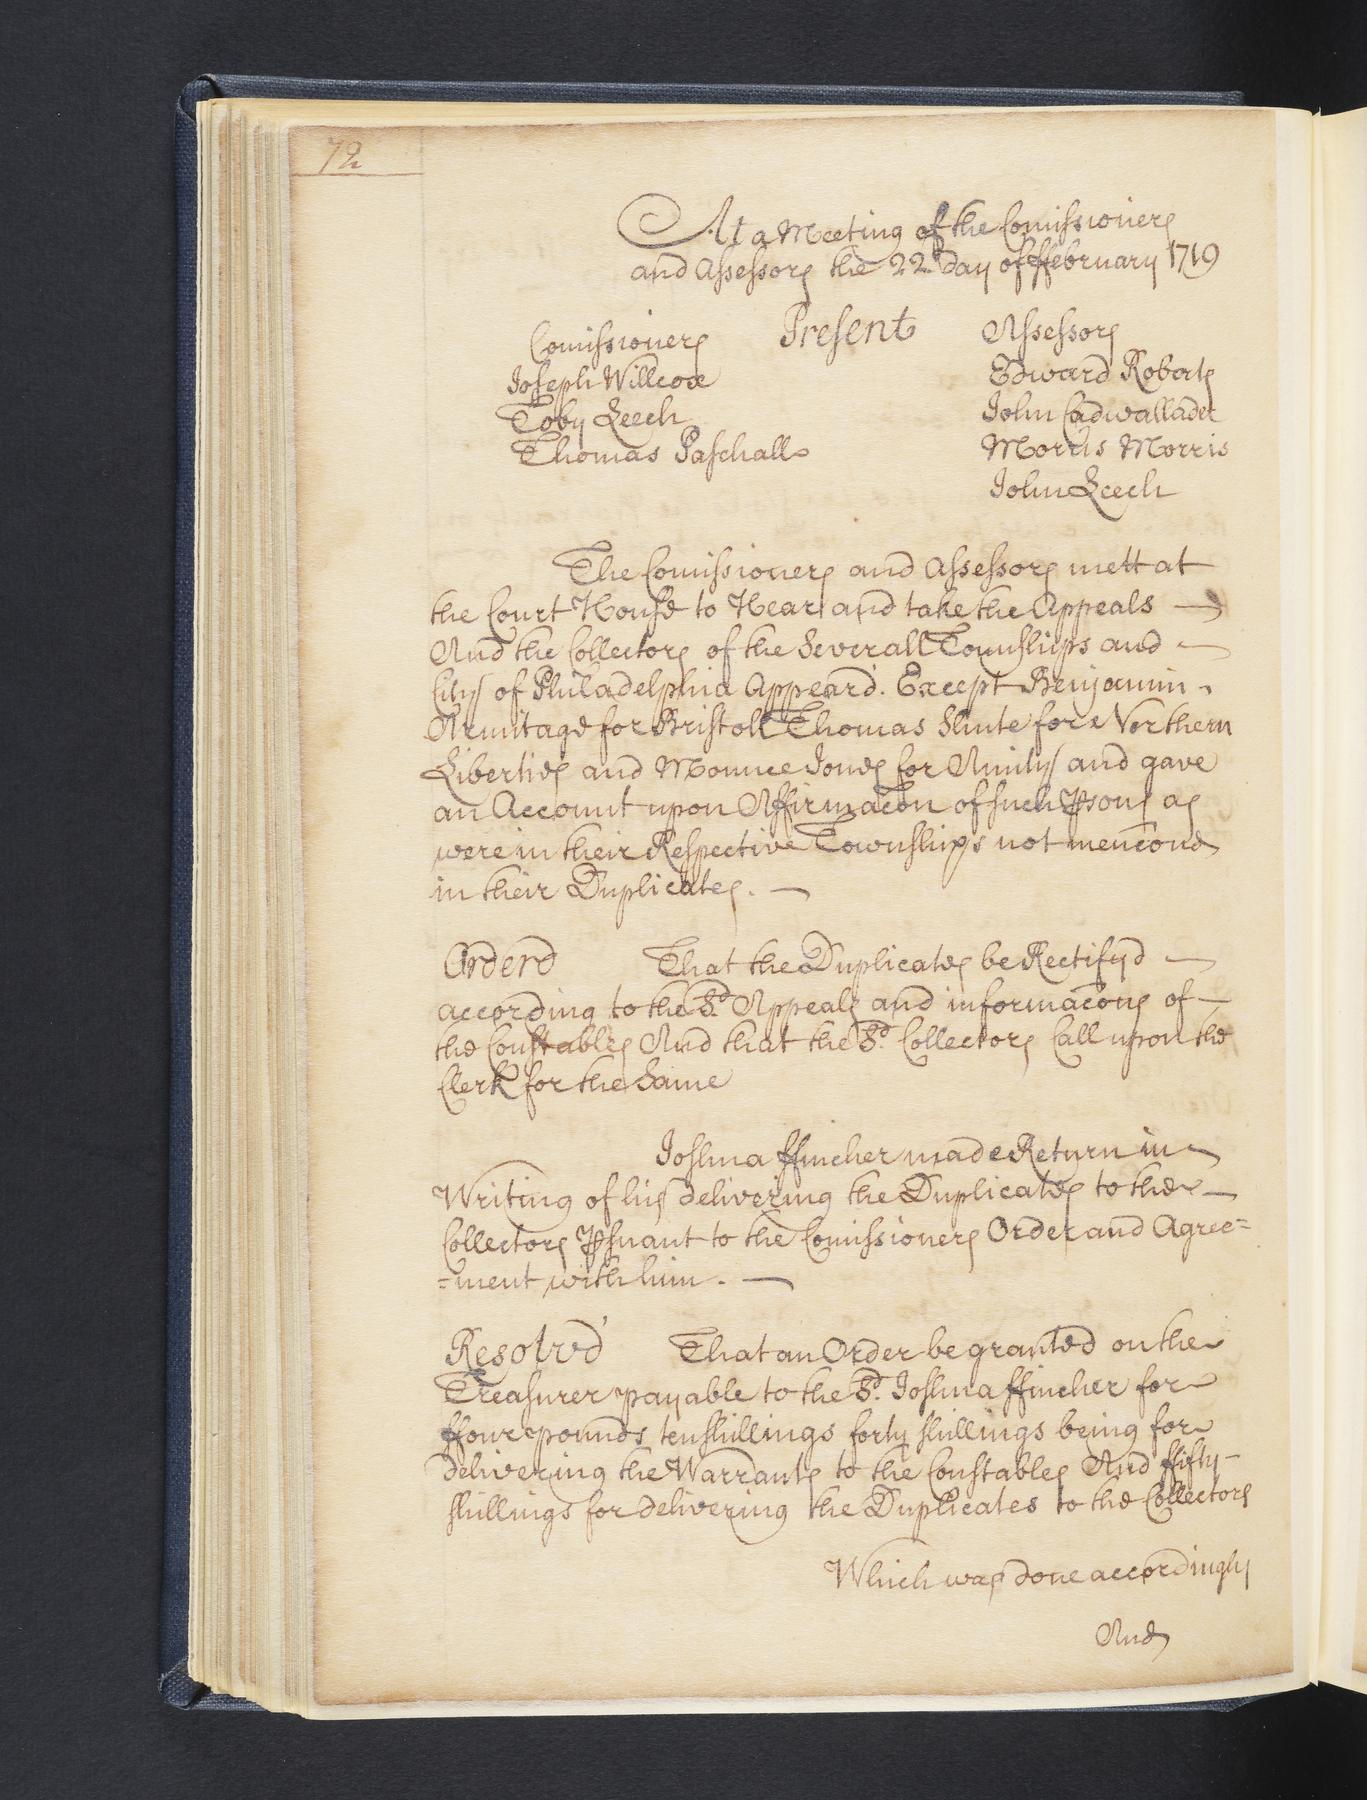 72
At a Meeting of the Comissioners
and Assessors the 22d. Day of ffebruary 1719
Comissioners Present Assessors
Joseph Willcox Edward Roberts
Toby Leech John Cadwallader
Thomas Paschall Morris Morris
John Leech
The Comissioners and Assessors mett at
the Court House to Hear and take the Appeals —
And the Collectors of the Severall Townships and —
City of Philadelphia Appear'd. Except Benjamin
Armitage for Bristoll Thomas Shute for Northern
Liberties and Mounce Jones for Amity and gave
an Account upon Affirmacon of such Psons as
were in their Respective Townships not mencond
in their Duplicates. —
Orderd That the Duplicates be Rectifyd —
according to the Sd. Appeals and informacons of —
the Constables And that the Sd. Collectors Call upon the
Clerk for the Same
Joshua ffincher made Return in
Writing of his delivering the Duplicates to the —
Collectors Psuant to the Comissioners Order and Agree=
=ment with him. —
Resolv'd That an Order be granted on the
Treasurer payable to the Sd. Joshua ffincher for
ffour pounds ten shillings forty shillings being for
delivering the Warrants to the Constables And ffifty —
shillings for delivering the Duplicates to the Collectors
Which was done accordingly
And